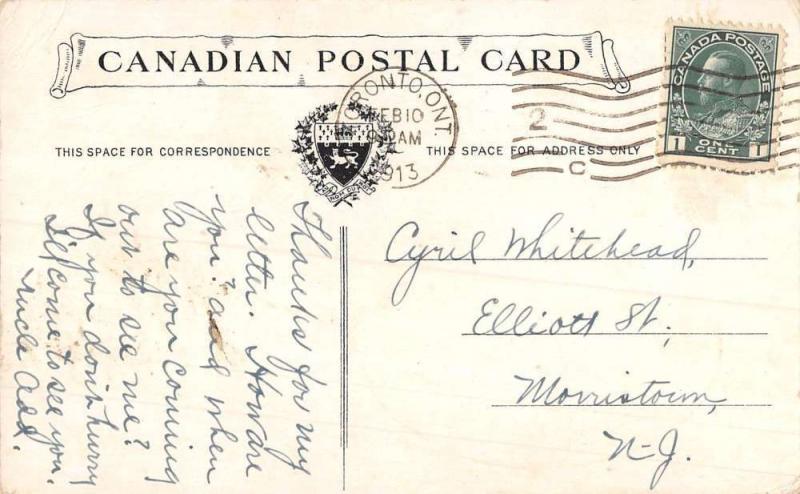 CANADIAN POSTAL CARD
TORONTO, ONT
FEB 10
AM
1913
2
C
CANADA POSTAGE
1 ONE CENT 1
THIS SPACE FOR CORRESPONDENCE
THIS SPACE FOR ADDRESS ONLY
Thanks for my
letter. How are
you? and when
are you coming
out to see me?
If you don't hurry
I'll come to see you.
Uncle Add.
Cyril Whitehead,
Elliott St,
Morristown,
N-J.